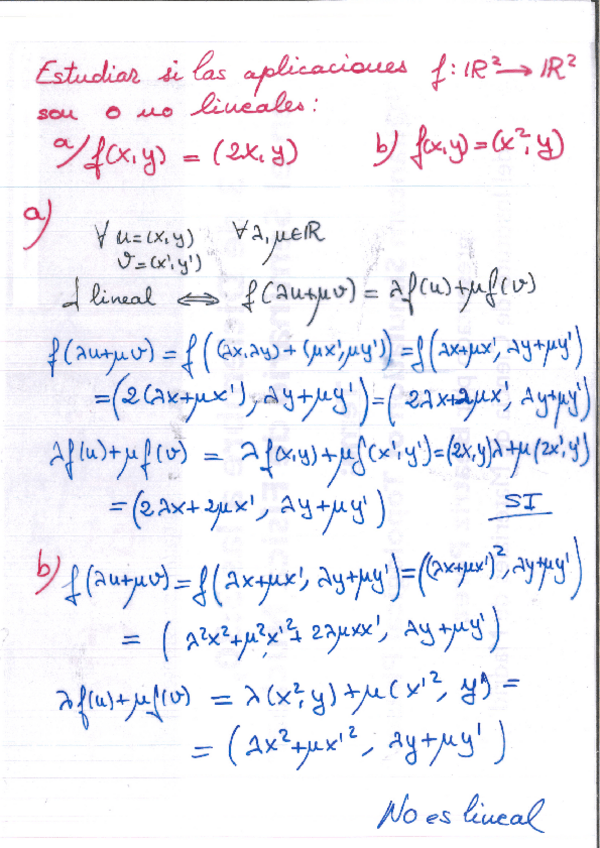 Estudiar si las aplicaciones f: ℝ² → ℝ²
son o no lineales:
a/ f(x,y) = (2x, y)   b) f(x,y) = (x², y)
a)
∀ u=(x,y)   ∀ λ, μ ∈ ℝ
v=(x',y')
f lineal ⟺ f(λu+μv) = λf(u)+μf(v)
f(λu+μv) = f((λx,λy)+(μx',μy')) = f(λx+μx', λy+μy')
=(2(λx+μx'), λy+μy')=(2λx+2μx', λy+μy')
λf(u)+μf(v) = λf(x,y)+μf(x',y')=(2x,y)λ+μ(2x',y')
=(2λx+2μx', λy+μy')   SI
b) f(λu+μv)=f(λx+μx', λy+μy')=((λx+μx')², λy+μy')
= (λ²x²+μ²x'²+2λμxx', λy+μy')
λf(u)+μf(v) = λ(x², y)+μ(x'², y') =
= (λx²+μx'², λy+μy')
No es lineal